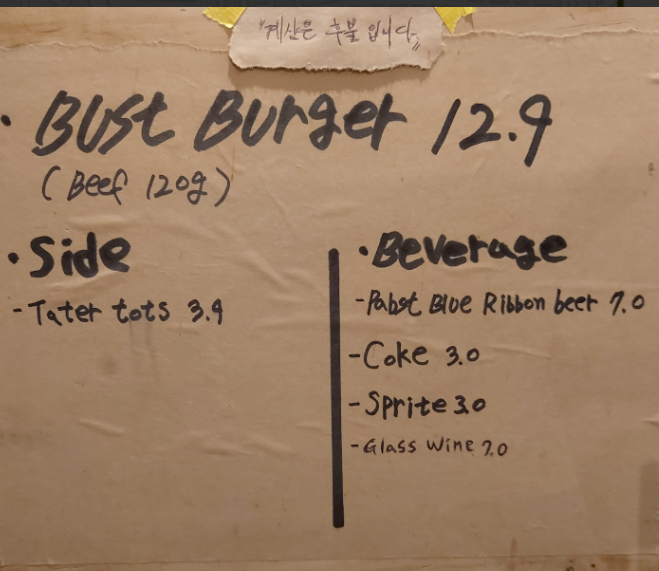 "계산은 후불 입니다."
· Bust Burger 12.9
(Beef 120g)
· Side
- Tater tots 3.9
· Beverage
- Pabst Blue Ribbon beer 7.0
- Coke 3.0
- Sprite 3.0
- Glass Wine 7.0